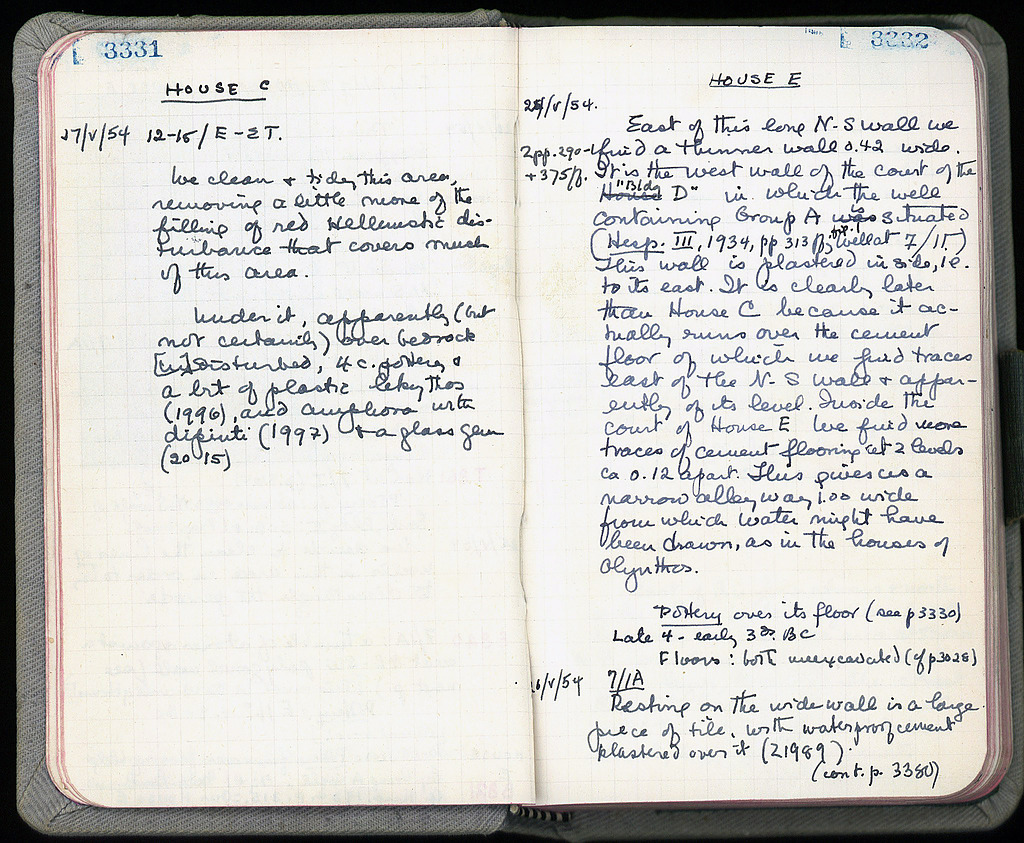 3331
HOUSE C
17/V/54 12-15/E-ΣT.
We clean & tidy this area,
removing a little more of the
filling of red Hellenistic dis-
turbance that covers much
of this area.
Under it, apparently (but
not certainly) over bedrock
[un]disturbed, 4 c. pottery &
a bit of plastic lekythos
(1996), and amphora with
dipinti (1997) & a glass gem
(2015)
3332
HOUSE E
/V/54.
East of this long N-S wall we
find a thinner wall 0.42 wide.
pp. 290-1
+ 375 ff.
It is the west wall of the court of the
House "Bldg D" in which the well
containing Group A was is situated
(Hesp. III, 1934, pp 313 ff, well at 7/ΙΓ)
This wall is plastered inside, i.e.
to its east. It is clearly later
than House C because it ac-
tually runs over the cement
floor of which we find traces
east of the N-S wall & appar-
ently of its level. Inside the
court of House E we find more
traces of cement flooring at 2 levels
ca 0.12 apart. This gives us a
narrow alley way 1.00 wide
from which water might have
been drawn, as in the houses of
Olynthos.
Pottery over its floor (see p 3330)
Late 4 - early 3rd BC
Floors: both unexcavated (cf p 3028)
6/V/54 7/ΙΑ
Resting on the wide wall is a large
piece of tile, with waterproof cement
plastered over it (Z1989).
(cont. p. 3380)